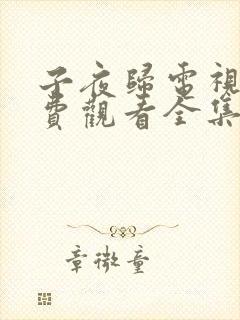 子夜歸電視
費觀看全集
章微童